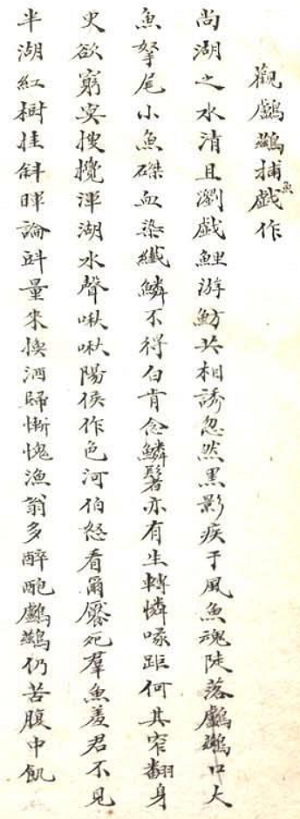 觀鸕鶿捕魚戲作
尚湖之水清且瀏戲鯉游魴共相誘忽然黑影疾于風魚魂陡落鸕鶿口大
魚拏尾小魚磔血染纖鱗不得白肯念鱗鬐亦有生轉憐啄距何其窄翻身
更欲窮冥搜攪渾湖水聲啾啾陽侯作色河伯怒看爾饜死羣魚憂君不見
半湖紅樹挂斜暉論斗量來換酒歸慚愧漁翁多醉飽鸕鶿仍苦腹中飢